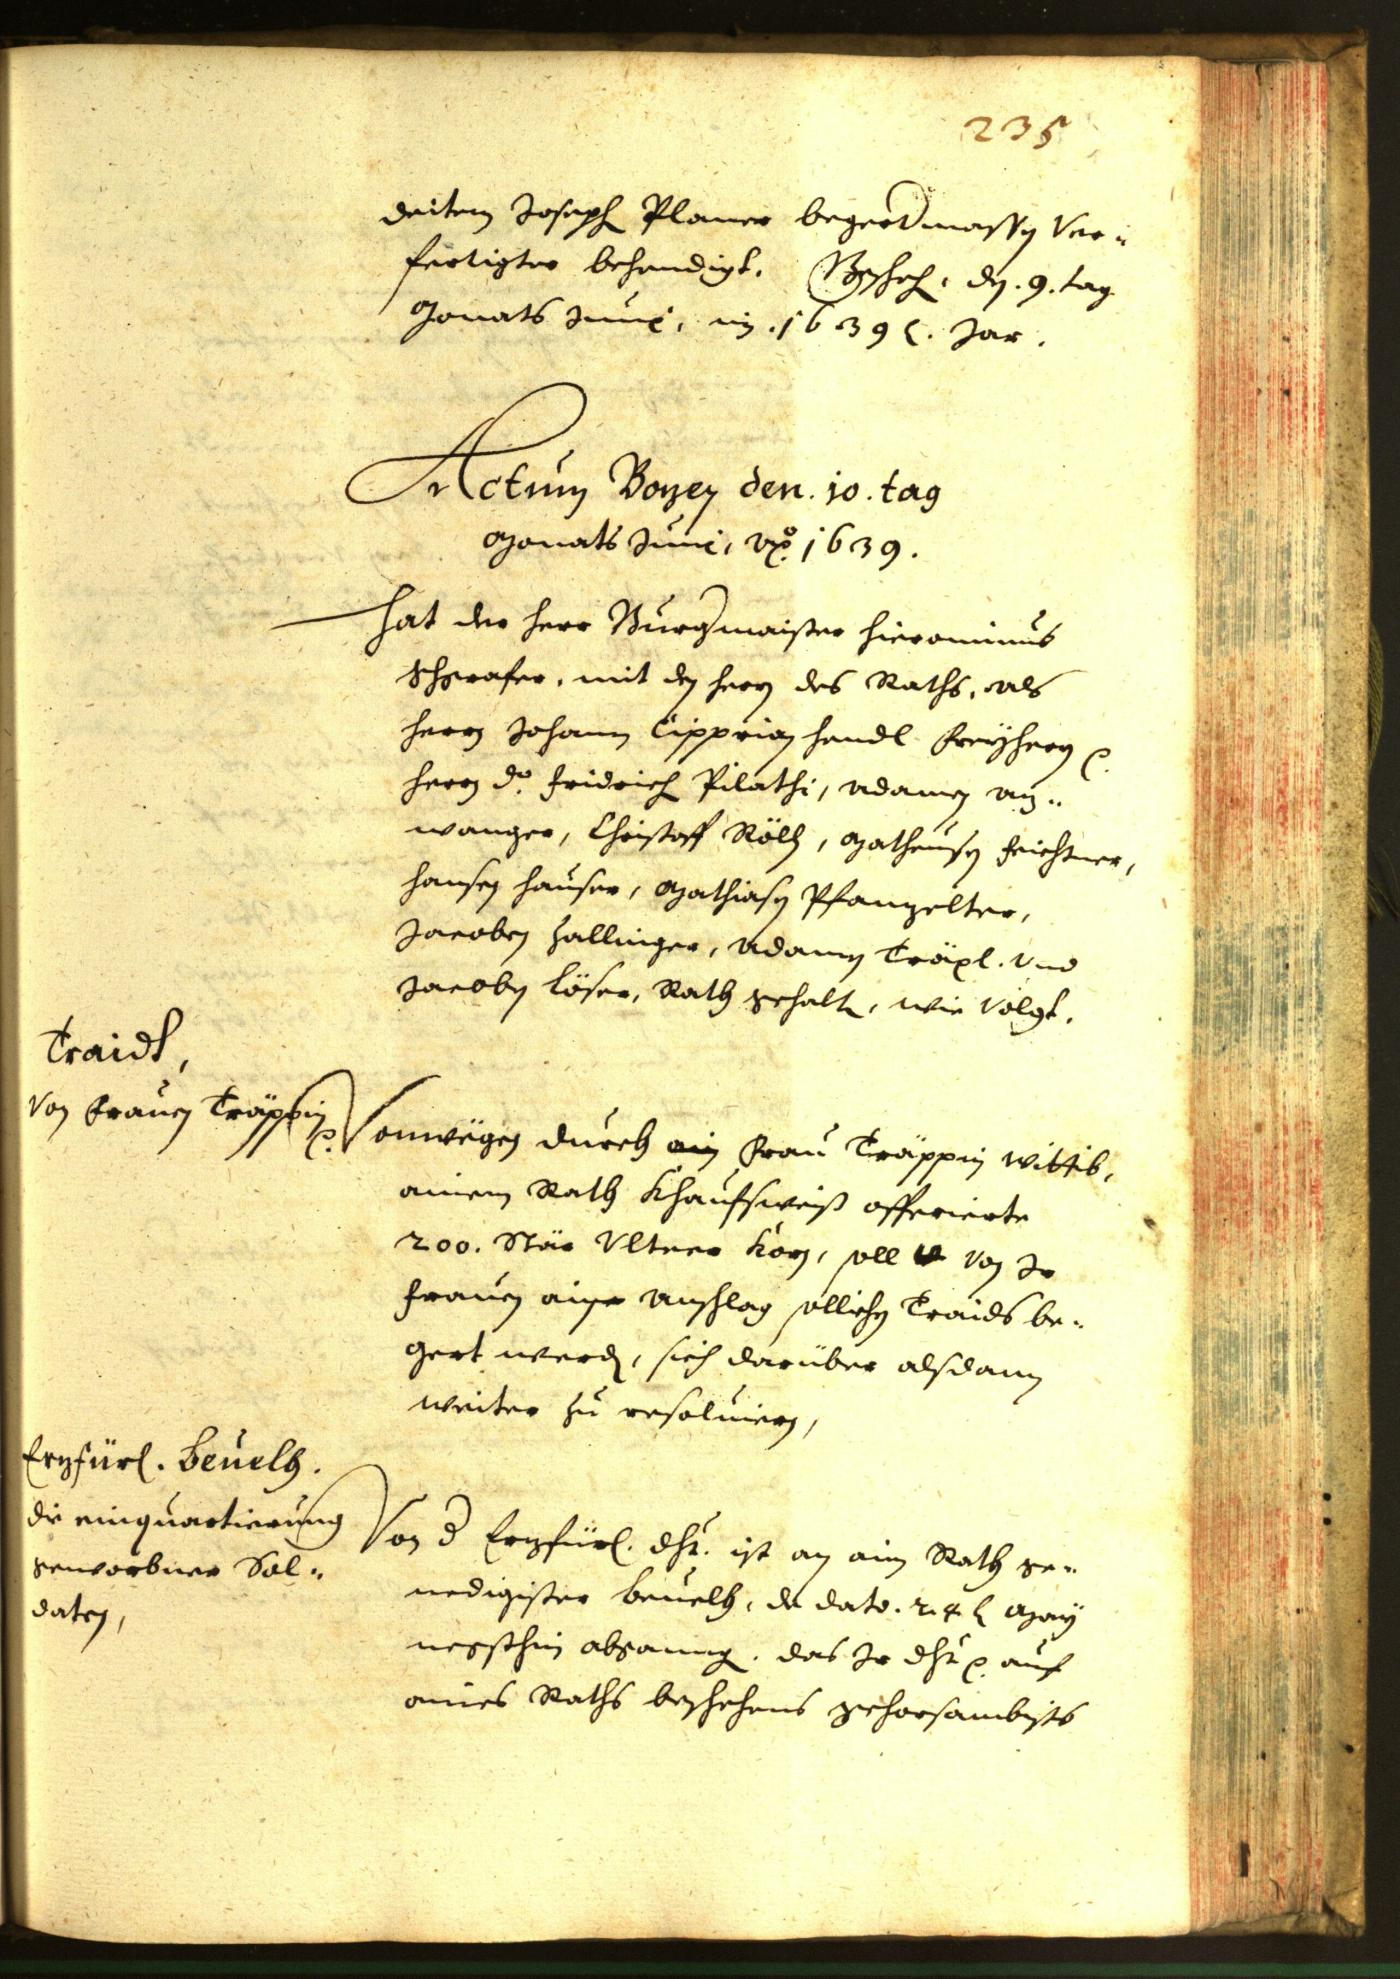 235
deitem Joseph Planer begertmassen Ver-
fertigter behendigt. Geschech. den. 9. tag
Monats Junii, im .1639.ᵗ. Jar.
Actum Bozen den. 10. tag
Monats Junii, Aō. 1639.
Hat der Herr Burgermaister Hieronimus
Schgrafer, mit den Herrn des Raths, als
Herrn Johann Cipprian Hendl Freyherrn ꝛc.
Herrn Dr. Fridrich Pilathi, Adamen An-
wanger, Christoff Röll, Matheusen Feichtner,
Hansen Hauser, Mathiasen Pfanzelter,
Jacoben Zallinger, Adamen Träxl. Und
Jacoben Löser, Rath gehalten, wie Volgt.
Traidt,
Von Frauen Träppin
ꝛc.
Vonwëgen durch ain Frau Träppin Wittib,
ainem Rath Khaufsweiß offerierte
200. Stär Ultner Korn, soll Von Ir
Frauen ainen Anschlag sollichen Traids be-
gert werden, sich darüber alsdann
weiter zu resoluiern,
Erzfürl. Beuelh.
die einquartierung
geworbner Sol-
daten,
Von der Erzfürl. Dht. ist an ain Rath ge-
nedigister beuelh, de dato. 24.ᵗ May
negsthin abgangen. das Ir Dht ꝛc. auf
aines Raths beschehens gehorsambists